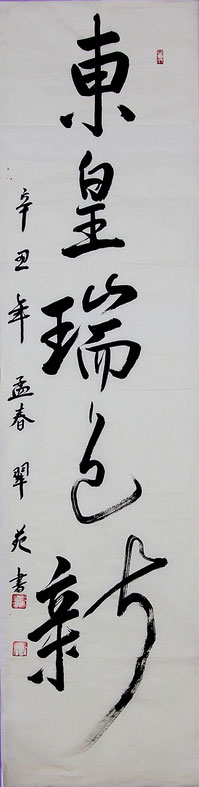 東皇瑞色新
辛丑年孟春翠苑書